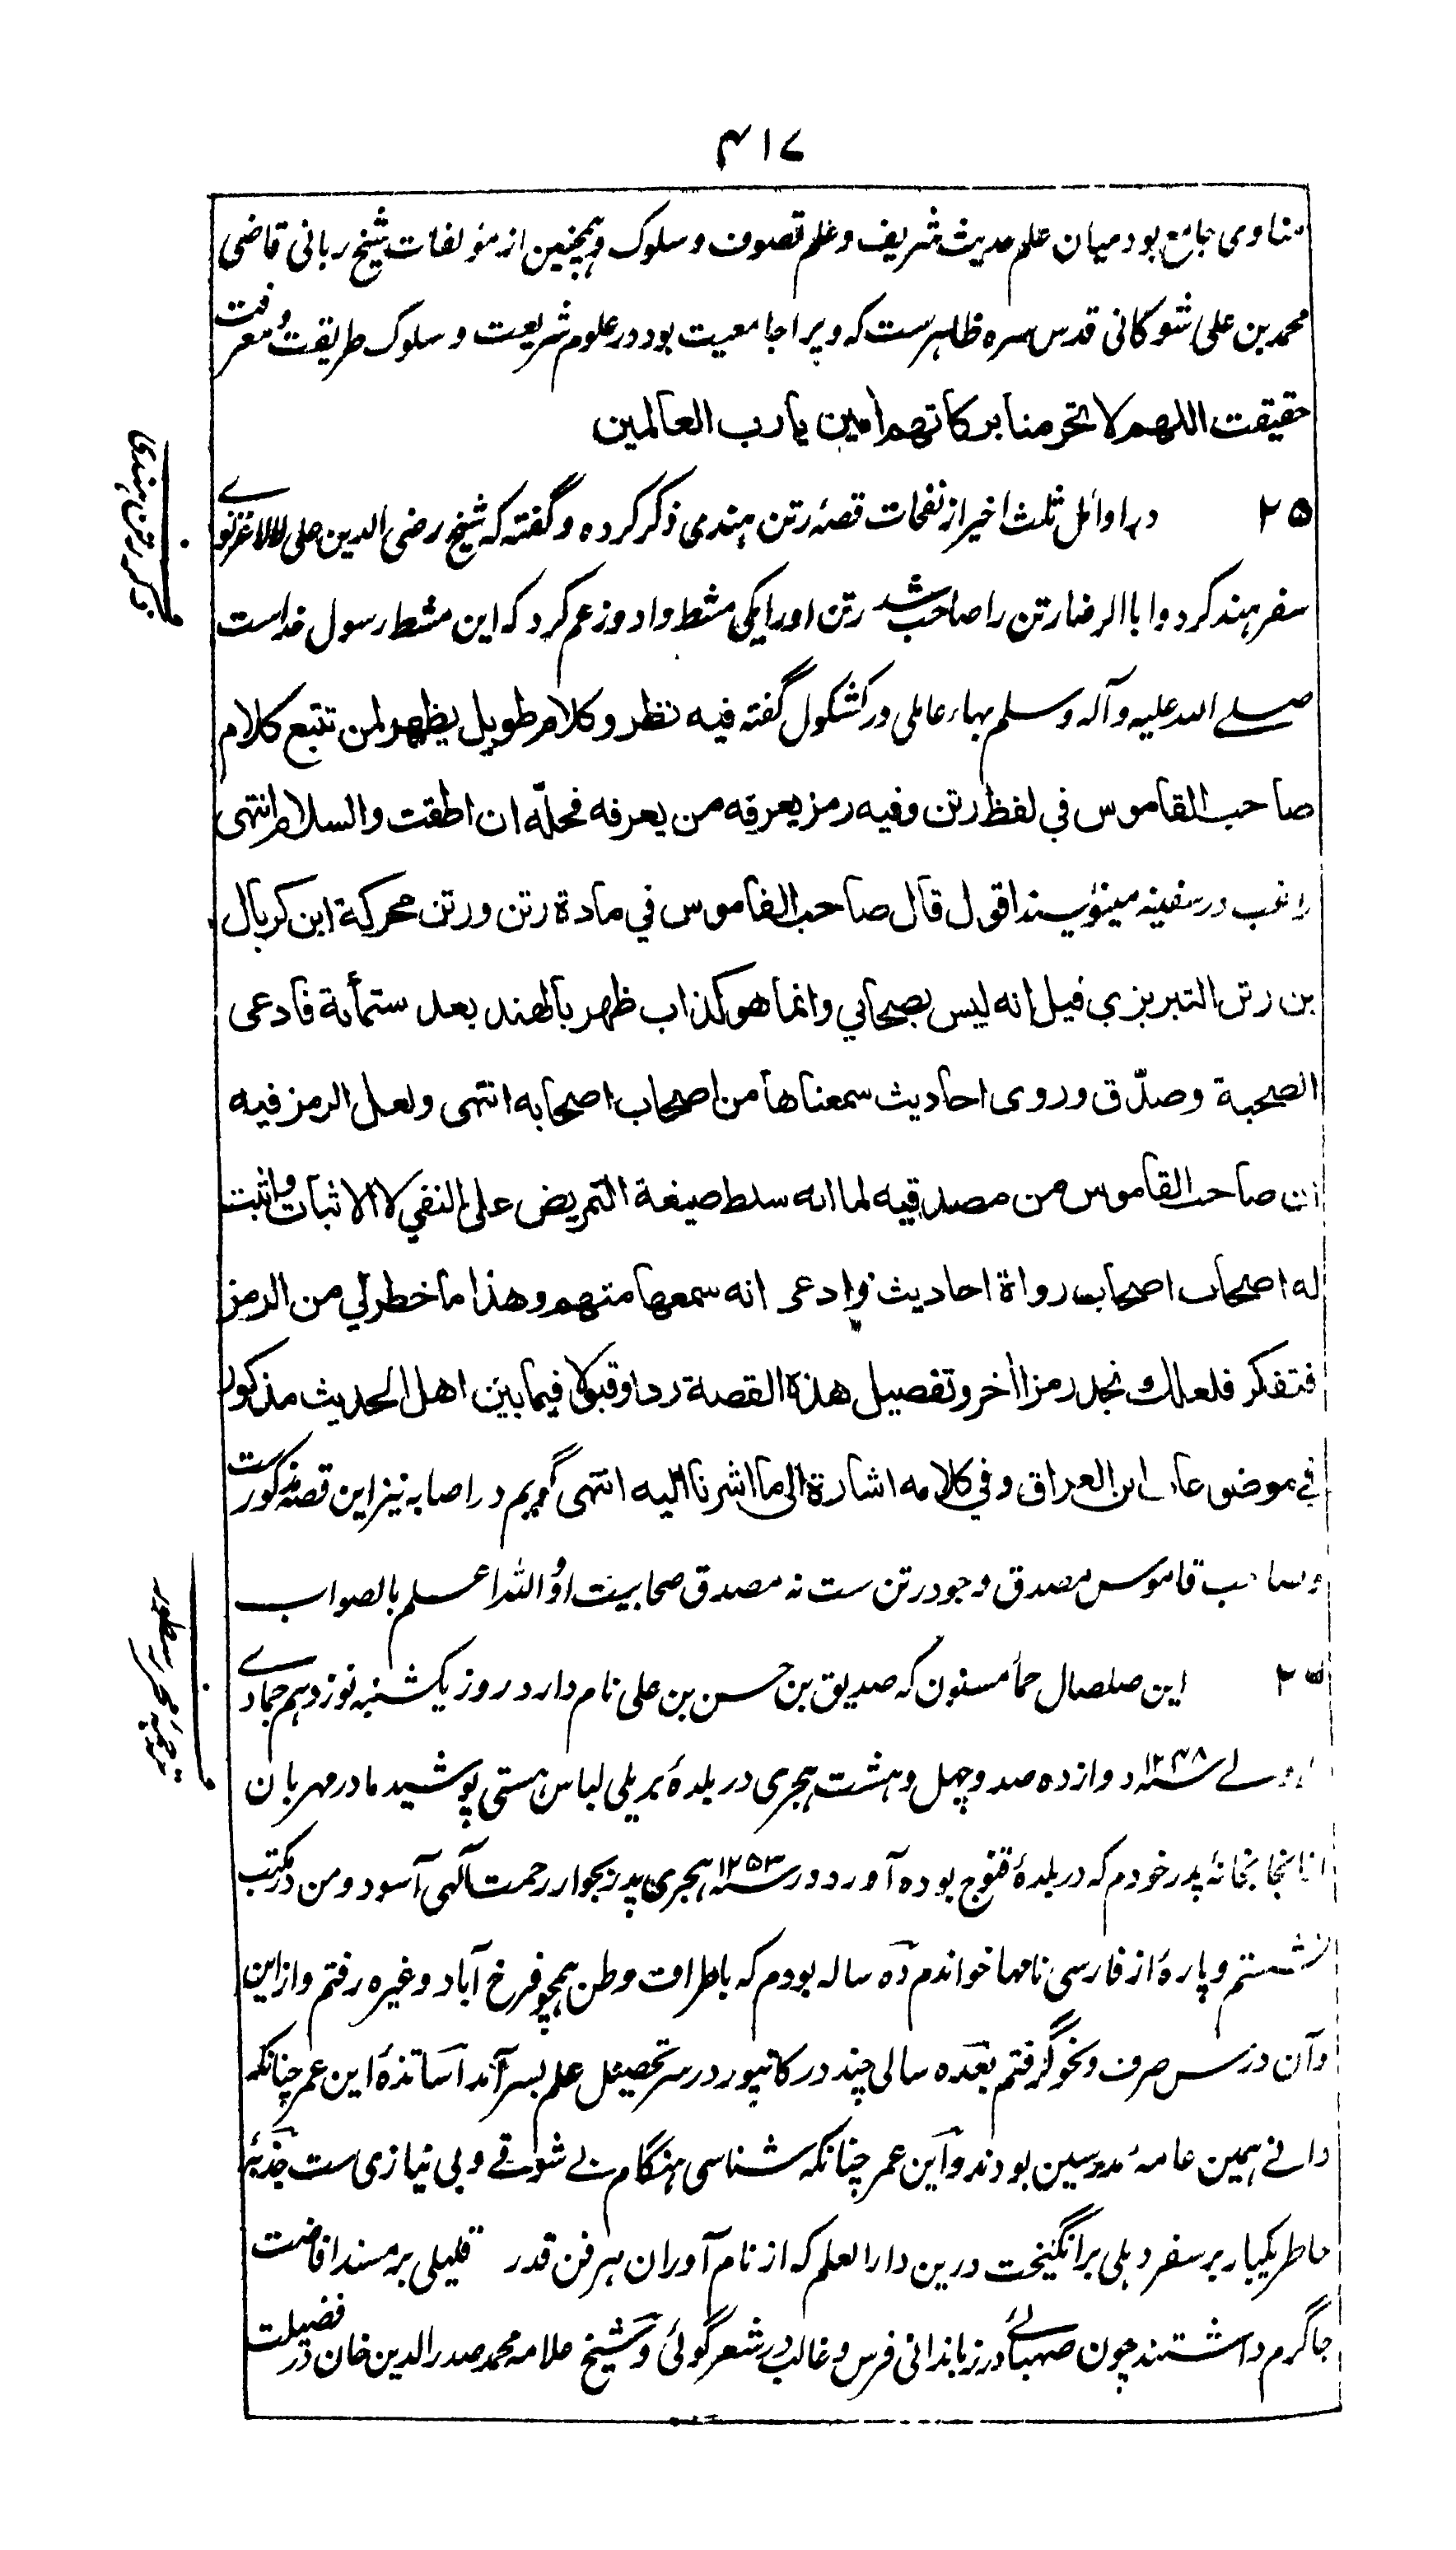 ۴۱۷
مناوی جامع بود میان علم حدیث شریف و علم تصوف و سلوک و همچنین از مؤلفات شیخ ربانی قاضی
محمد بن علی شوکانی قدس سره ظاهرست که ویرا جامعیت بود در علوم شریعت و سلوک طریقت و معرفت
حقیقت اللهم لا تحرمنا برکاتهم امین یا رب العالمین
ذکر رتن هندی
۲۵ در اوائل ثلث اخیر از نفحات قصهٔ رتن هندی ذکر کرده و گفته که شیخ رضی الدین علی لالا غزنوے
سفر هند کرد و ابا الرضا رتن را صاحب شد رتن او را یکی مشط داد و زعم کرد که این مشط رسول خداست
صلے الله علیه و آله و سلم بهاء عاملی در کشکول گفته فیه نظر و کلام طویل یظهر لمن تتبع کلام
صاحب القاموس في لفظ رتن وفیه رمز یعرفه من یعرفه فحلّه ان اطقت والسلام انتهی
راغب در سفینه مینویسد اقول قال صاحب القاموس في مادة رتن ورتن محرکة ابن کربال
بن رتن التبریزي قیل إنه لیس بصحابي وانما هو کذاب ظهر بالهند بعد ستمأئة فادعی
الصحبة وصدّق وروی احادیث سمعناها من اصحاب اصحابه انتهی ولعل الرمز فیه
ان صاحب القاموس من مصدقیه لما انه سلط صیغة التمریض علی النفي لا الاثبات واثبت
له اصحاب اصحاب رواة احادیث وادعی انه سمعها منهم وهذا ما خطر لي من الرمز
فتفکر فلعلك نجد رمزا أخر وتفصیل هذه القصة ردا وقبولا فیما بین اهل الحدیث مذکور
في موضوعات ابن العراق وفي کلامه اشارة الی ما اشرنا الیه انتهی گویم در اصابه نیز این قصه مذکورست
و صاحب قاموس مصدق وجود رتن ست نه مصدق صحابیت او والله اعلم بالصواب
ترجمهٔ محرر سطور
۲۵ این صلصال حمأ مسنون که صدیق بن حسن بن علی نام دارد روز یکشنبه نوزدهم جمادے
الاولے سنه ۱۲۴۸ دوازده صد و چهل و هشت هجری در بلدهٔ بریلی لباس هستی پوشید مادر مهربان
ازانجا بخانهٔ پدر خودم که در بلدهٔ قنوج بوده آورد و در سنه ۱۲۵۳ هجری پدر بجوار رحمت آلهی آسود و من در مکتب
نشستم و پارهٔ از فارسی نامها خواندم ده ساله بودم که باطراف وطن همچو فرخ آباد و غیره رفتم و از این
و آن درس صرف و نحو گرفتم بعده سالی چند در کانپور در سر تحصیل علم بسر آمد اساتذهٔ این عمر چنانکه
دانے همین عامهٔ مدرسین بودند و این عمر چنانکه شناسی هنگام بے شوقے و بی نیازی ست جذبهٔ
خاطر یکبار بر سفر دهلی برانگیخت درین دار العلم که از نام آوران هر فن قدر قلیلی بر مسند افاضت
جا گرم داشتند چون صهبائے در زباندانی فرس و غالب در شعر گوئی و شیخ علامه محمد صدر الدین خان در فضیلت